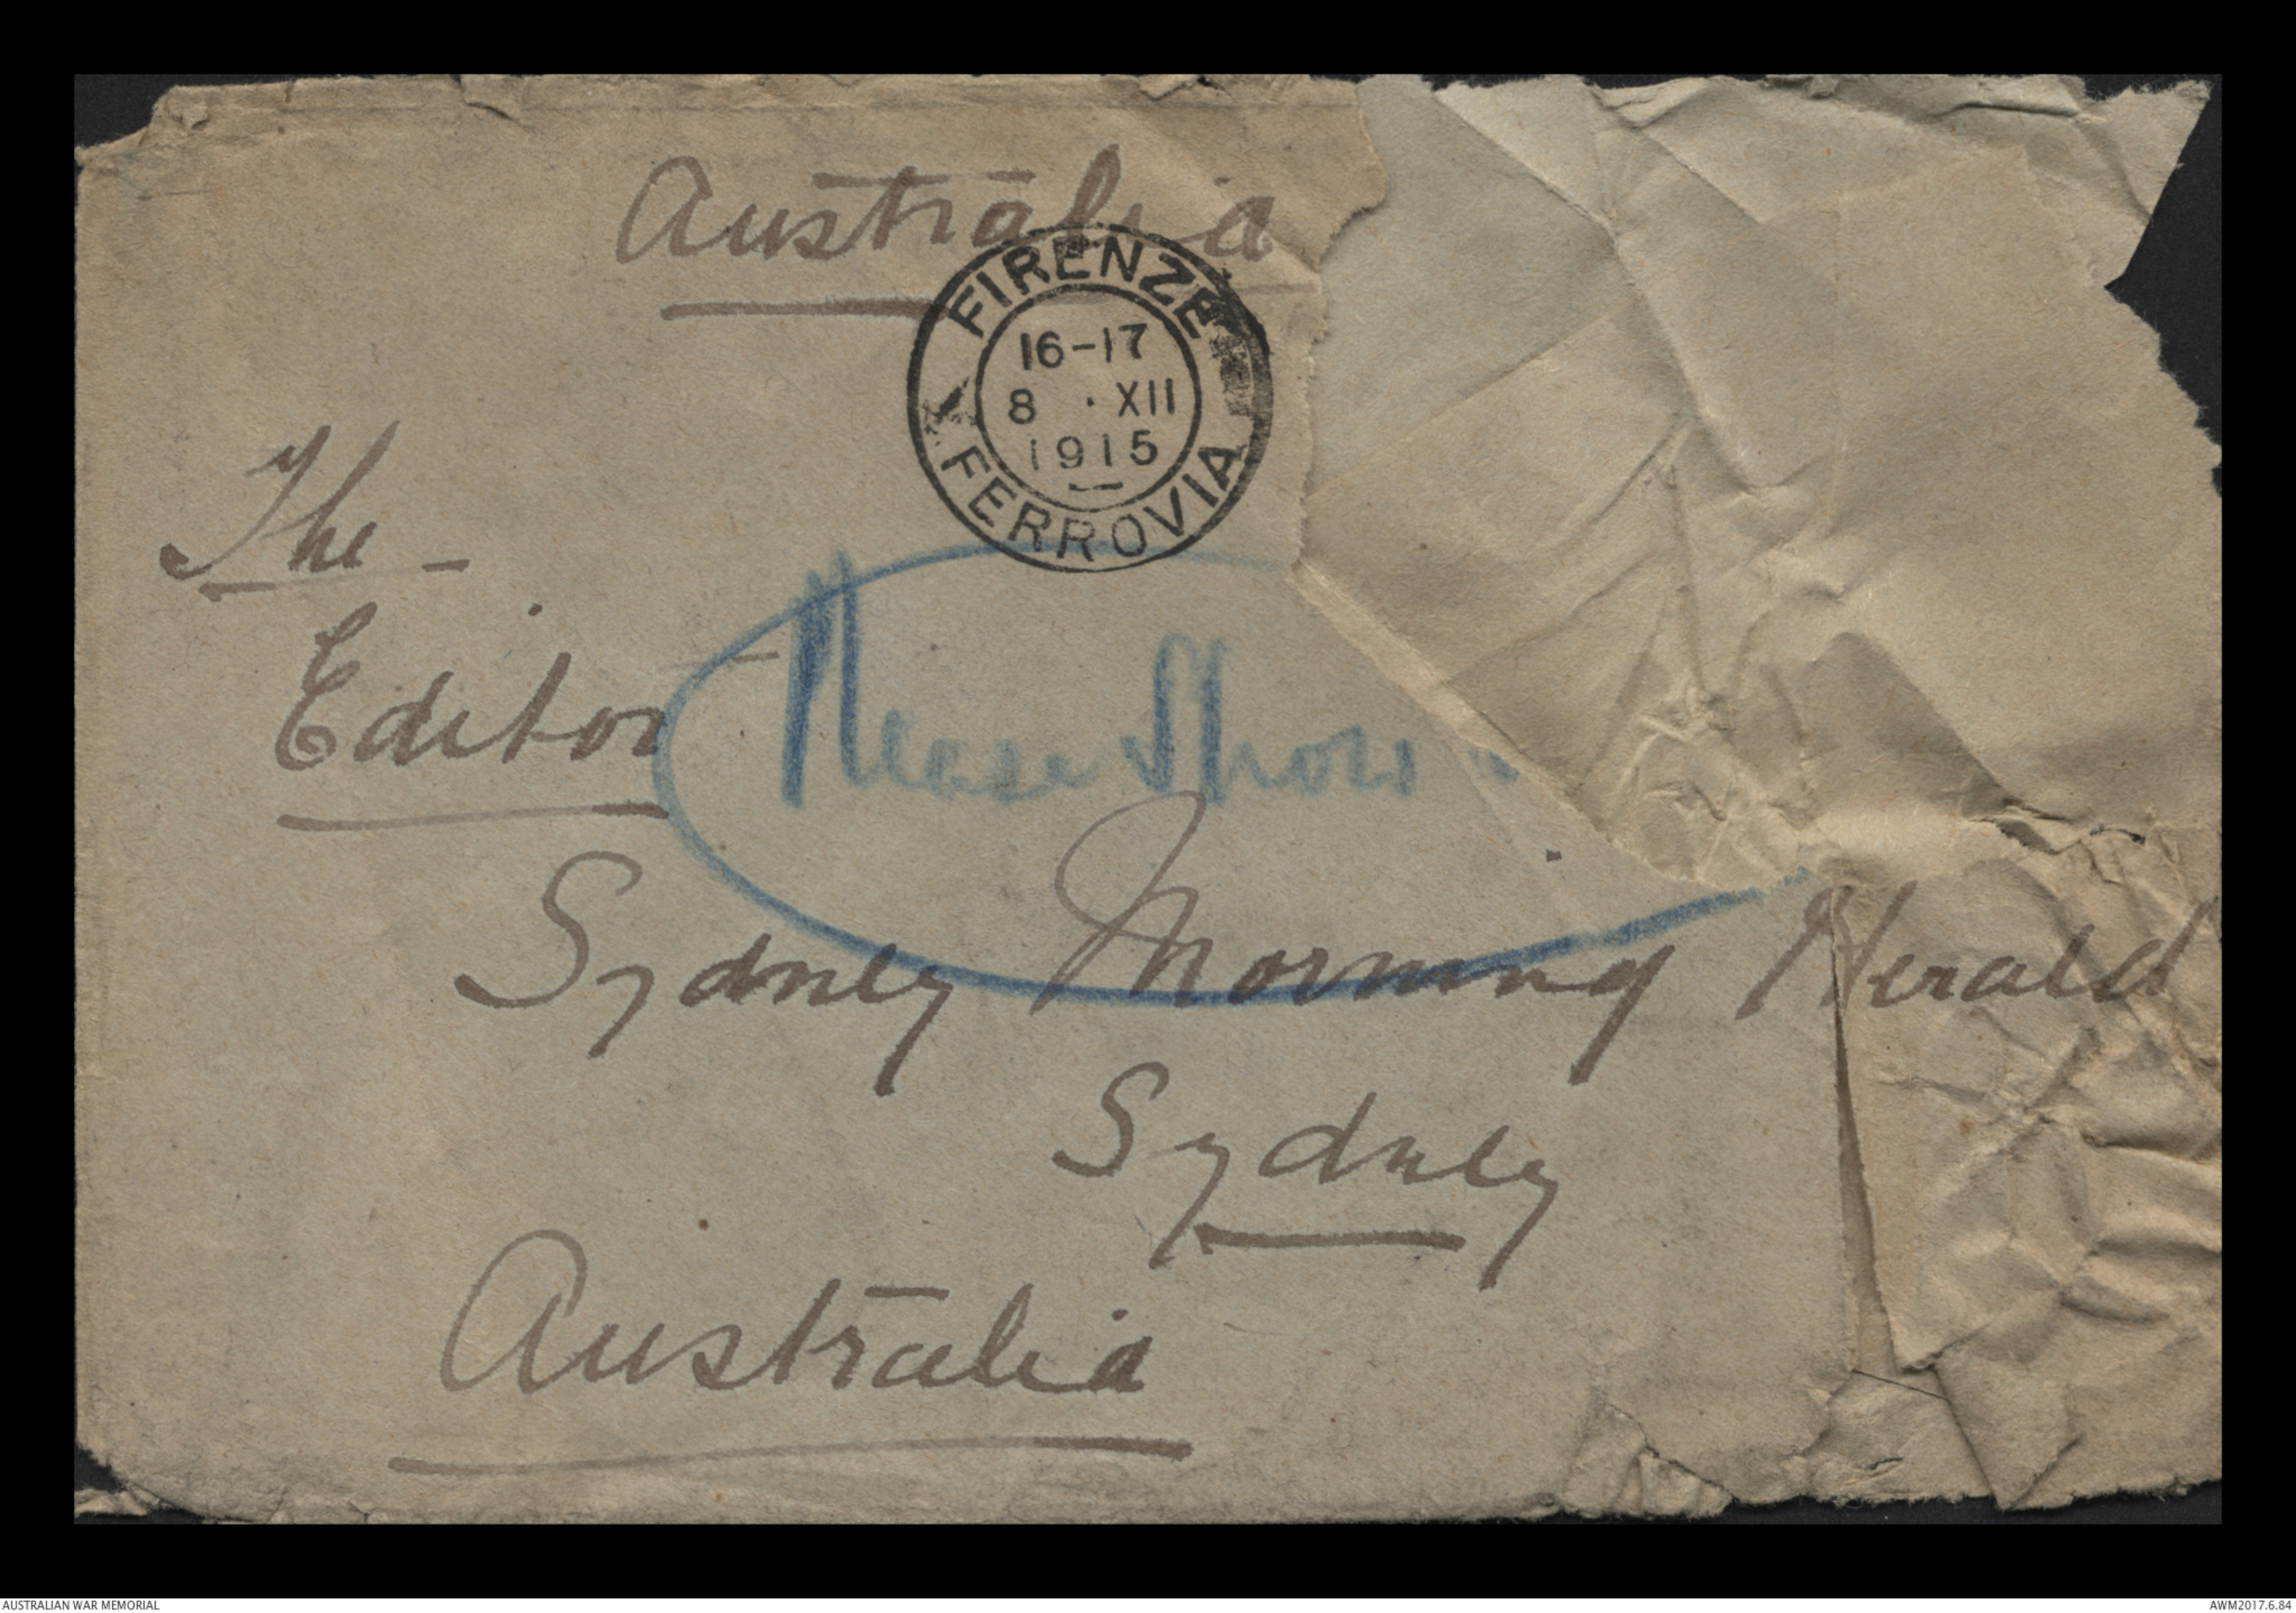 Australia
FIRENZE
16-17
8 · XII
1915
FERROVIA
The -
Editor
Please Show
Sydney Morning Herald
Sydney
Australia
AUSTRALIAN WAR MEMORIAL
AWM2017.6.84